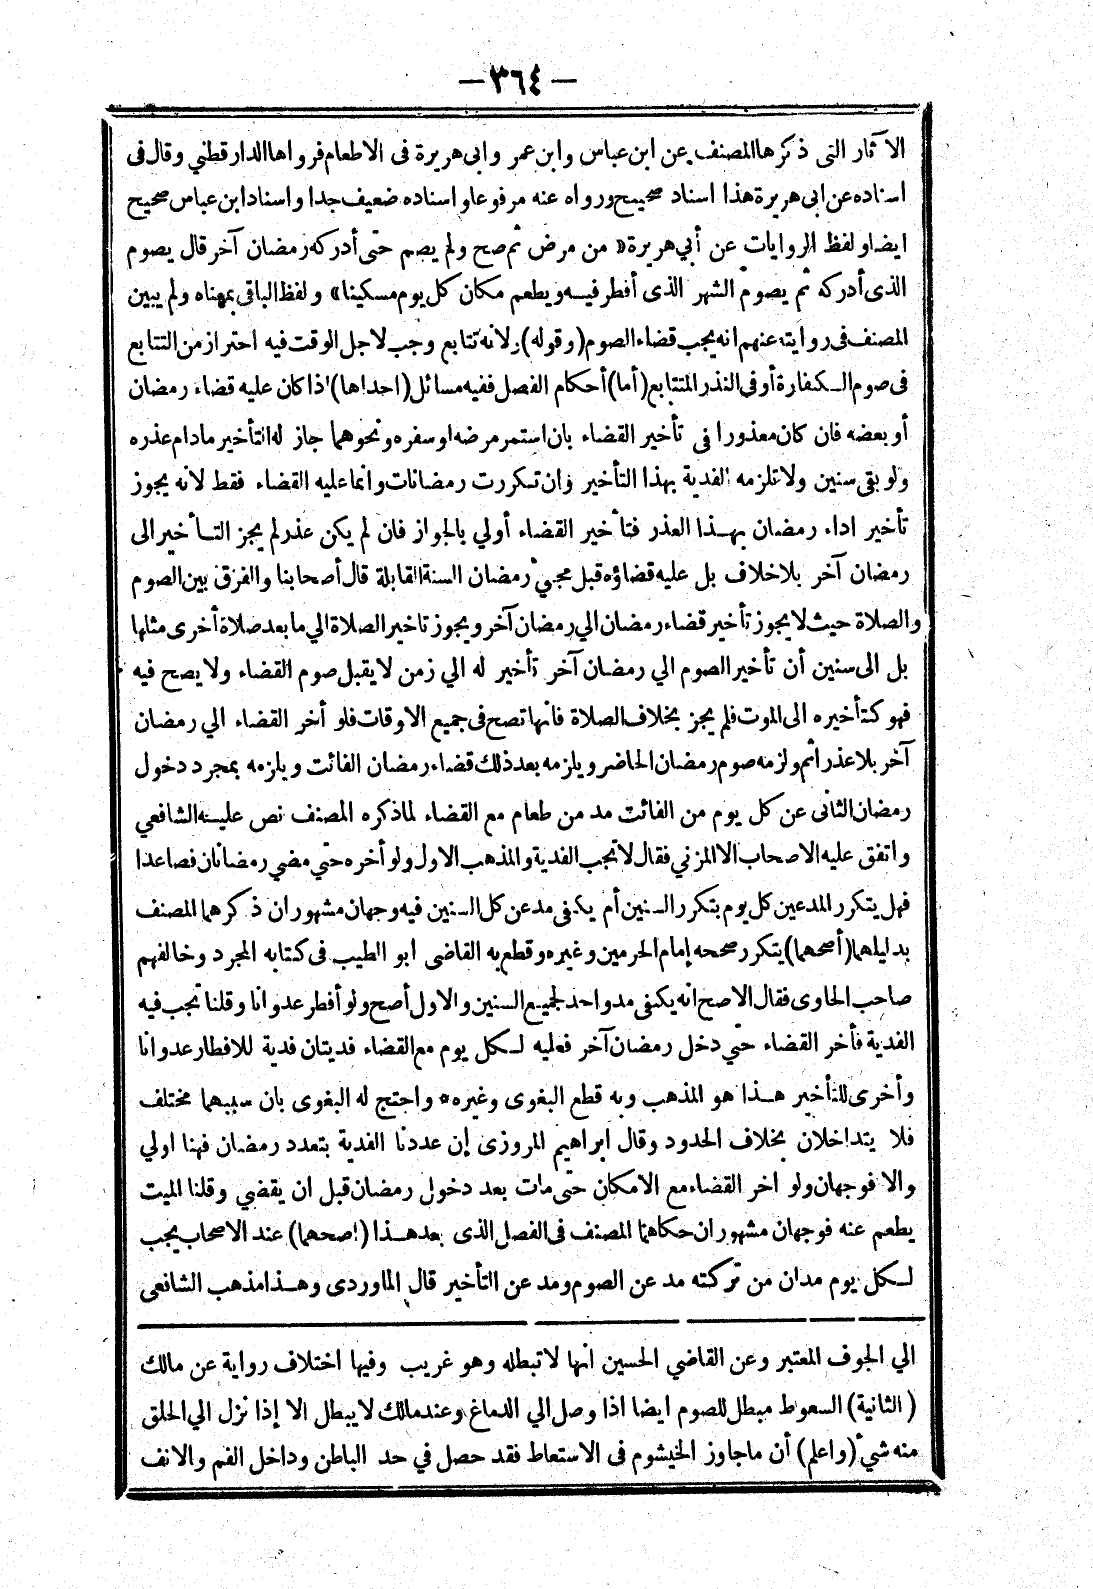 — ٣٦٤ —
الآثار التى ذكرها المصنف عن ابن عباس وابن عمر وابى هريرة فى الاطعام فرواها الدارقطني وقال فى
اسناده عن ابى هريرة هذا اسناد صحيح ورواه عنه مرفوعا واسناده ضعيف جدا واسناد ابن عباس صحيح
ايضا ولفظ الروايات عن أبي هريرة « من مرض ثم صح ولم يصم حتى أدركه رمضان آخر قال يصوم
الذى أدركه ثم يصوم الشهر الذى أفطر فيه ويطعم مكان كل يوم مسكينا » ولفظ الباقى بمعناه ولم يبين
المصنف فى روايته عنهم انه يجب قضاء الصوم (وقوله) ولانه تتابع وجب لاجل الوقت فيه احتراز من التتابع
فى صوم الكفارة أو فى النذر المتتابع (أما) أحكام الفصل ففيه مسائل (احداها) اذا كان عليه قضاء رمضان
أو بعضه فان كان معذورا فى تأخير القضاء بان استمر مرضه او سفره ونحوهما جاز له التأخير مادام عذره
ولو بقى سنين ولا تلزمه الفدية بهذا التأخير وان تكررت رمضانات وانما عليه القضاء فقط لانه يجوز
تأخير اداء رمضان بهذا العذر فتأخير القضاء أولي بالجواز فان لم يكن عذر لم يجز التأخير الى
رمضان آخر بلا خلاف بل عليه قضاؤه قبل مجيء رمضان السنة القابلة قال أصحابنا والفرق بين الصوم
والصلاة حيث لا يجوز تأخير قضاء رمضان الي رمضان آخر ويجوز تاخير الصلاة الي ما بعد صلاة أخرى مثلها
بل الى سنين أن تأخير الصوم الي رمضان آخر تأخير له الي زمن لا يقبل صوم القضاء ولا يصح فيه
فهو كتأخيره الى الموت فلم يجز بخلاف الصلاة فانها تصح فى جميع الاوقات فلو أخر القضاء الي رمضان
آخر بلا عذر أثم ولزمه صوم رمضان الحاضر ويلزمه بعد ذلك قضاء رمضان الفائت ويلزمه بمجرد دخول
رمضان الثانى عن كل يوم من الفائت مد من طعام مع القضاء لما ذكره المصنف نص عليه الشافعي
واتفق عليه الاصحاب الا المزني فقال لا تجب الفدية والمذهب الاول ولو أخره حتي مضي رمضانان فصاعدا
فهل يتكرر المد عن كل يوم بتكرر السنين أم يكفى مد عن كل السنين فيه وجهان مشهوران ذكرهما المصنف
بدليلهما (أصحهما) يتكرر صححه إمام الحرمين وغيره وقطع به القاضى ابو الطيب فى كتابه المجرد وخالفهم
صاحب الحاوى فقال الاصح انه يكفى مد واحد لجميع السنين والاول أصح ولو أفطر عدوانا وقلنا تجب فيه
الفدية فأخر القضاء حتي دخل رمضان آخر فعليه لكل يوم مع القضاء فديتان فدية للافطار عدوانا
وأخرى للتأخير هذا هو المذهب وبه قطع البغوى وغيره * واحتج له البغوى بان سببهما مختلف
فلا يتداخلان بخلاف الحدود وقال ابراهيم المروزى إن عددنا الفدية بتعدد رمضان فهنا اولي
والا فوجهان ولو اخر القضاء مع الامكان حتى مات بعد دخول رمضان قبل ان يقضي وقلنا الميت
يطعم عنه فوجهان مشهوران حكاهما المصنف فى الفصل الذى بعد هذا (اصحهما) عند الاصحاب يجب
لكل يوم مدان من تركته مد عن الصوم ومد عن التأخير قال الماوردى وهذا مذهب الشافعى
الي الجوف المعتبر وعن القاضي الحسين انها لا تبطله وهو غريب وفيها اختلاف رواية عن مالك
(الثانية) السعوط مبطل للصوم ايضا اذا وصل الي الدماغ وعند مالك لا يبطل الا إذا نزل الي الحلق
منه شيء (واعلم) أن ما جاوز الخيشوم فى الاستعاط فقد حصل في حد الباطن وداخل الفم والانف